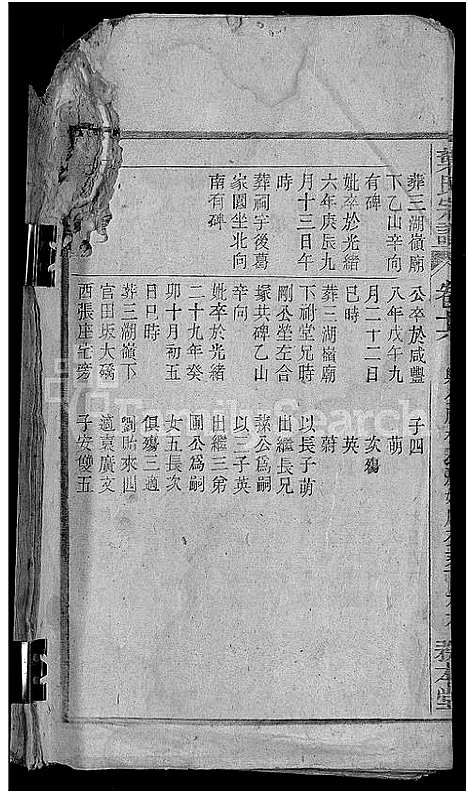 葬三湖嶺廟
下乙山辛向
有碑
妣卒於光緒
六年庚辰九
月十三日午
時
葬祠宇後葛
家園坐北向
南有碑
公卒於咸豐
八年戊午九
月二十二日
巳時
葬三湖嶺廟
下祔堂兄時
剛公坐左合
塚共碑乙山
辛向
妣卒於光緒
二十九年癸
卯十月初五
日巳時
葬三湖嶺下
官田坂大磡
西張座宅旁
子四
萌
次殤
英
蔚
以長子萌
出繼長兄
公為嗣
以三子英
出繼三弟
圃公為嗣
女五長次
俱殤三適
劉貽來四
適袁廣文
子安雙五
葉氏宗譜
卷
務本堂
FamilySearch